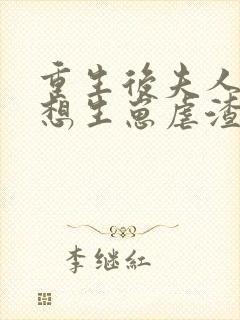 重生後夫人
想生崽虐渣
李继紅